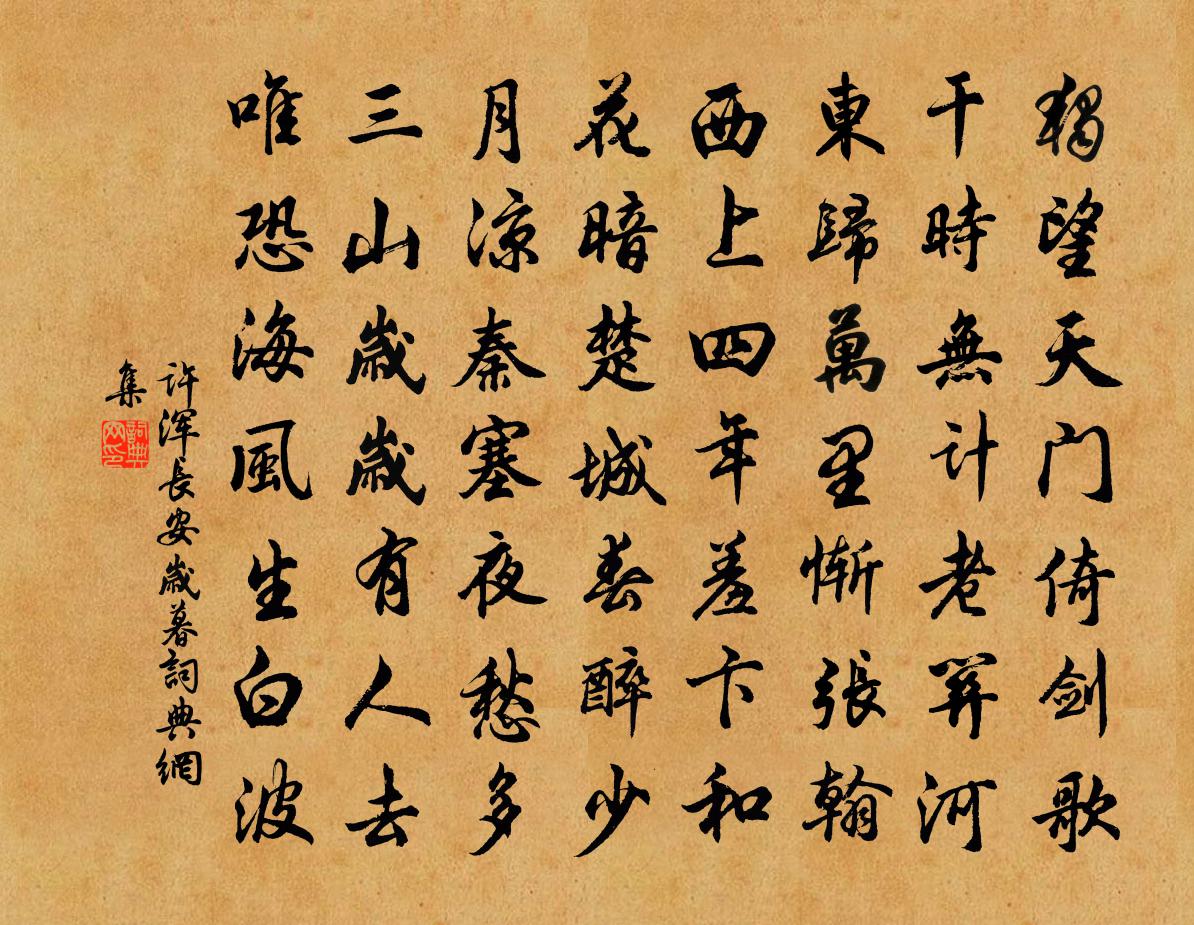 獨望天门倚劍歌
干時無計老關河
東歸萬里慚張翰
西上四年羞卞和
花暗楚城春醉少
月凉秦塞夜愁多
三山歲歲有人去
唯恐海風生白波
许渾長安歲暮詞典網
集
詞典网印